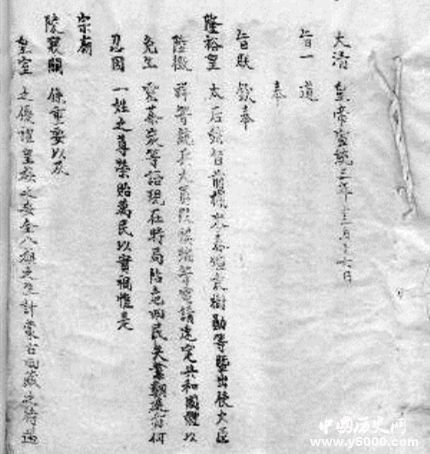 大清 皇帝宣統三年十二月十六日
旨一道
奉
旨朕欽奉
隆裕皇太后懿旨前據岑春煊袁樹勛等暨出使大臣
陸徵祥等統兵大員段祺瑞等電請速定共和國體以
免生靈塗炭等語現在時局阽危四民失業何
忍因一姓之尊榮貽萬民以實禍惟是
宗廟
陵寢關係重要以及
皇室之優禮皇族之安全八旗之生計蒙古回藏之待遇
中国历史网
www.y5000.com